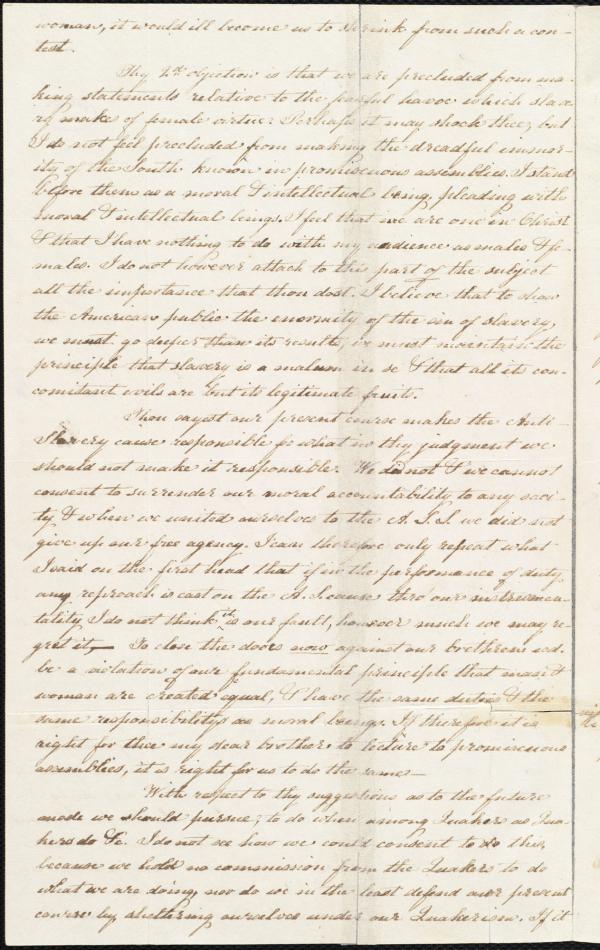 woman, it would ill become us to shrink from such a con-
test.
Thy 2nd objection is that we are precluded from ma-
king statements relative to the fearful havoc which slave-
ry makes of female virtue. Perhaps it may shock thee, but
I do not feel precluded from making the dreadful immor-
ality of the South known in promiscuous assemblies. I stand
before them as a moral & intellectual being, pleading with
moral & intellectual beings. I feel that we are one in Christ
& that I have nothing to do with my audience as males & fe-
males. I do not however attach to this part of the subject
all the importance that thou dost. I believe that to show
the American public the enormity of the sin of slavery,
we must go deeper than its results, we must maintain the
principle that slavery is a malum in se & that all its con-
comitant evils are but its legitimate fruits.
Thou sayest our present course makes the Anti-
Slavery cause responsible for what in thy judgment we
should not make it responsible. We did not & we cannot
consent to surrender our moral accountability to any soci-
ty & when we united ourselves to the A. S. S. we did not
give up our free agency. I can therefore only repeat what
I said on the first head that if in the performance of duty
any reproach is cast on the A. S. cause thro' our instrumen-
tality I do not think it is our fault, however much we may re-
gret it,— To close the doors now against our brethren wd.
be a violation of our fundamental principle that man &
woman are created equal, & have the same duties & the
same responsibility as moral beings. If therefore it is
right for thee my dear brother to lecture to promiscuous
assemblies, it is right for us to do the same—
With respect to thy suggestions as to the future
mode we should pursue, to do when among Quakers as Qua-
kers do &c. I do not see how we could consent to do this,
because we hold no commission from the Quakers to do
what we are doing, nor do we in the least defend our present
course by sheltering ourselves under our Quakerism. If it